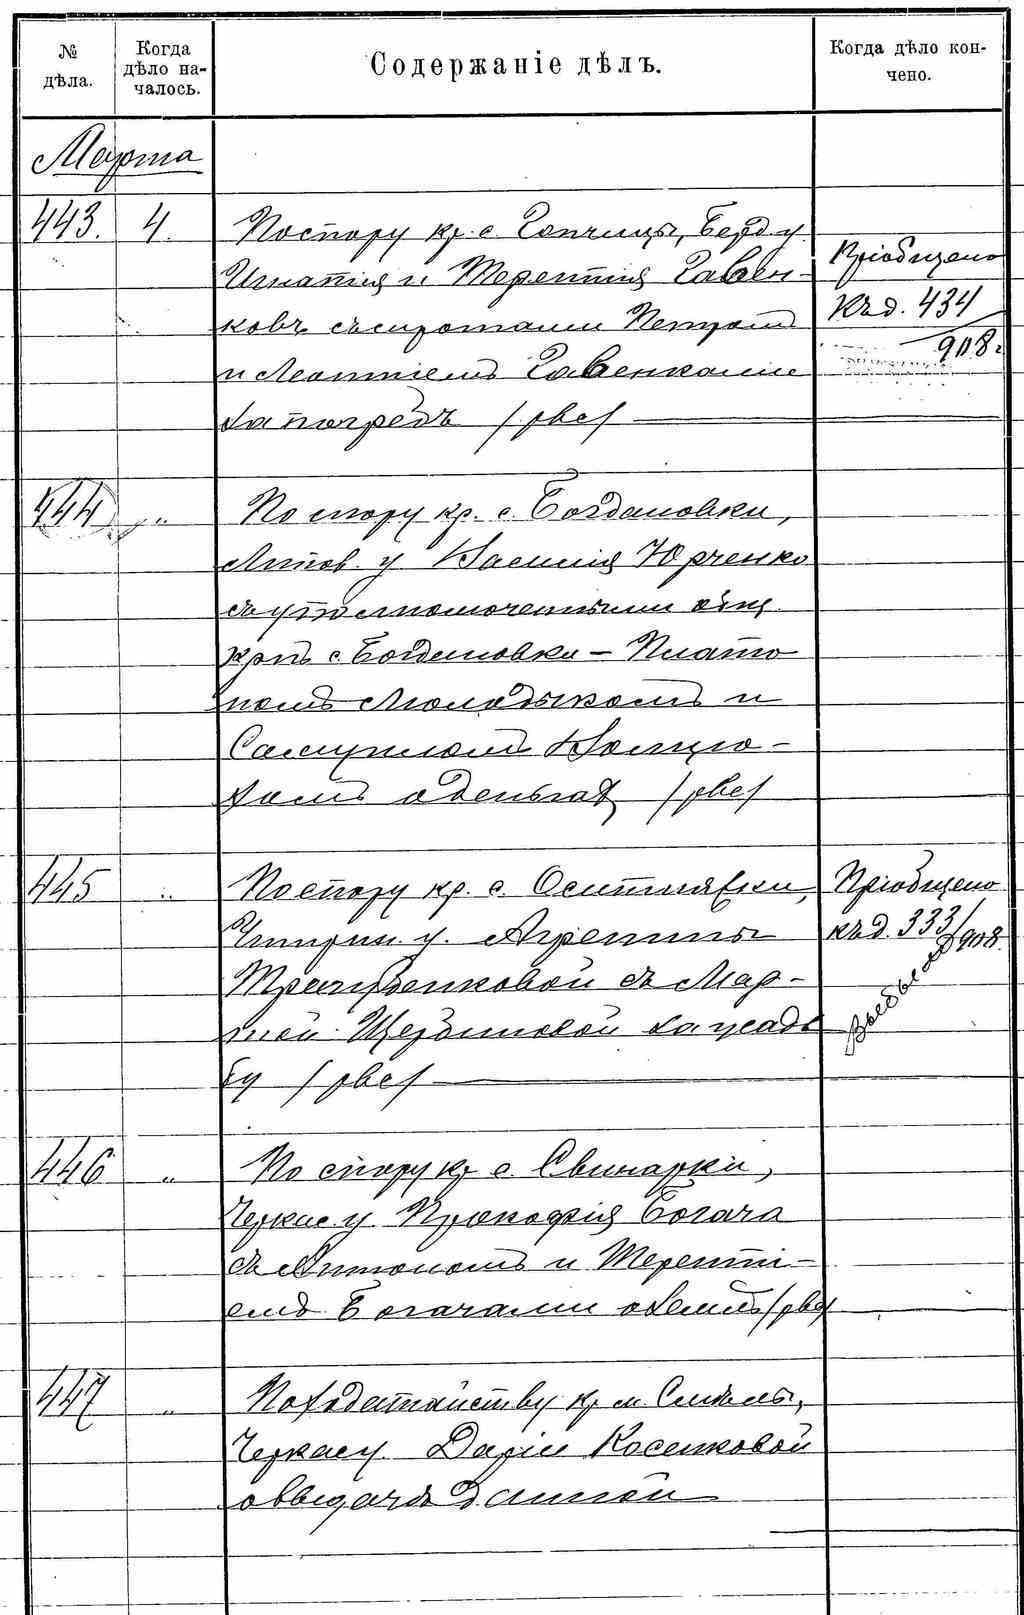 № дѣла.
Когда дѣло началось.
Содержаніе дѣлъ.
Когда дѣло кончено.
Марта
443. 4. По спору кр. с. Гопчицы, Берд. у.
Игнатія и Терентія Гавен-
ковъ съ сиротами Петромъ
и Леонтіемъ Гавенками
за погребъ /рвс/
Пріобщено
къ д. 434/908 г.
444 „ По спору кр. с. Богдановки,
Липов. у Василія Юрченко
съ уполномоченными общ.
крть с. Богдановки – Плато
номъ Молодыкомъ и
Самуиломъ
о деньгахъ /рвс/
445 „ По спору кр. с. Оситняжки,
Чигрин. у. Агрепины
съ Мар-
Щербиновой за усадь
бу /рвс/
Пріобщено
къ д. 333/908.
446 „ По спору кр с. Свинарки,
Черкас у. Прокофія Богача
съ Антономъ и Теренті-
емъ Богачами о землѣ /рвс/
447 „ По ходатайству кр м. Смѣлы,
Черкас у. Даріи Косенковой
о выдачѣ данной